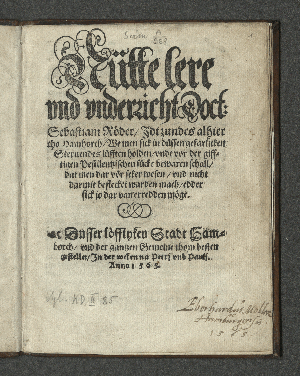 Nütte lere
vnd vnderricht Doct:
Sebastiani Röder / Itzundes alhier
tho Hamborch / Wo men sick in dussen geferliken
Steruendes lüfften holden / vnde vor der giff-
tigen Pestilentzischen sücke bewaren schall /
dat men dar vör seker wesen / vnd nicht
darmit beflecket warden mach / edder
sick jo dar van erredden möge.
Dusser löfflyken Stadt Ham-
borch / vnd der gantzen Gemeine thom besten
gestellet / In der weken na Petri vnd Pauli.
Anno 1565.
Eberhardus
Hamburgensis